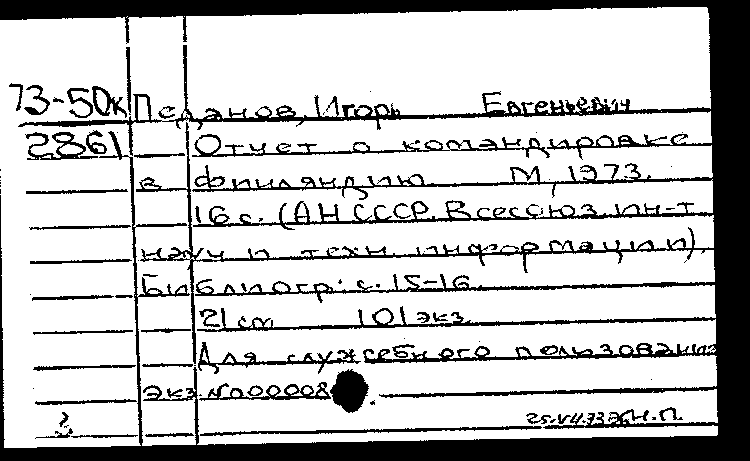 73-50к Педанов, Игорь Евгеньевич
2861 Отчет о командировке
в Финляндию М, 1973.
16 с. (АН СССР. Всесоюз. ин-т
науч и техн. информации).
Библиогр: с. 15-16.
21 см 101 экз.
Для служебного пользования
экз. №00008
Н.П.